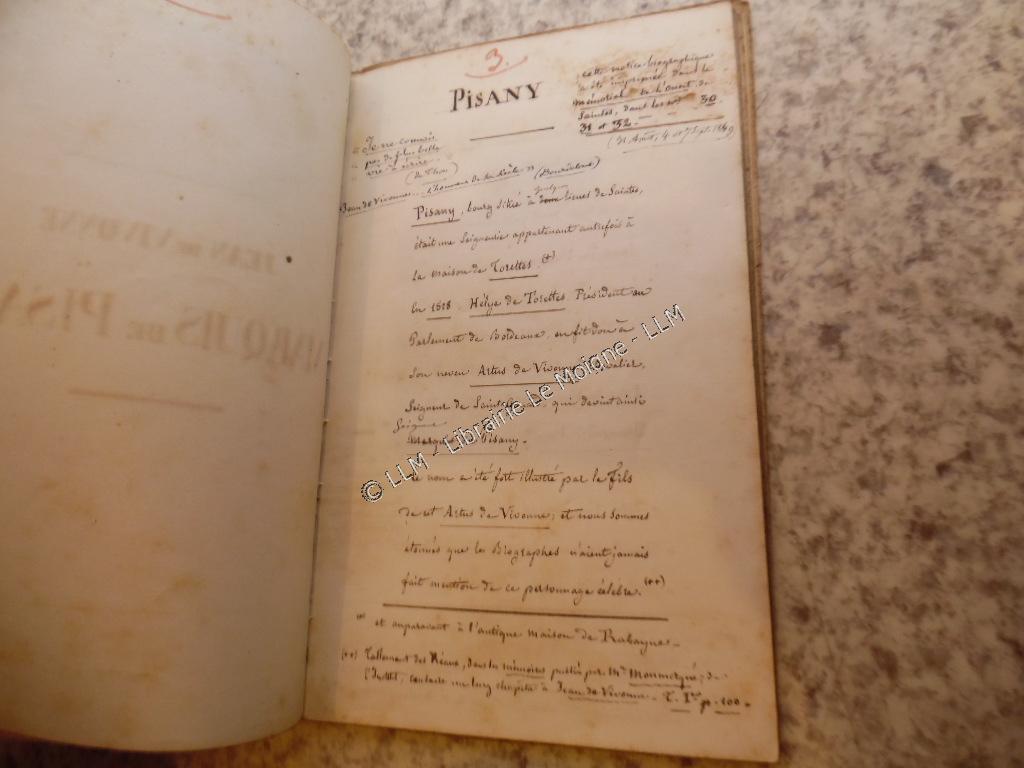 3.
PISANY
cette notice biographique
a été imprimée dans le
Mémorial de l'ouest de
Saintes, dans les nos 30
31 et 32.
(31 Août, 4 et 7 7bre 1849
« Je ne connais
« pas de plus belle
« vie à écrire.
(de Thou)
Jean de Vivonne... l'honneur de
Pisany, bourg situé à lieues de Saintes,
était une Seigneurie appartenant autrefois à
la maison de Torettes. (*)
En 1518. Hélye de Torettes. Président au
Parlement de Bordeaux, en fit don à
Son neveu Artus de Vivonne
Seigneur de qui devint ainsi
Seigneur
Pisany.
nom a été fort illustré par le fils
de cet Artus de Vivonne; et nous sommes
étonnés que les Biographes n'aient jamais
fait mention de ce personnage célèbre. (**)
(*) et auparavant à l'antique maison de Rabayne.
(**) Tallemant des Réaux, dans les mémoires publiés par Mr. Monmerqué, de
l'Instit, consacre un long chapitre à Jean de Vivonne. T. Ier p. 100.
JEAN DE VIVONNE
MARQUIS DE PISA
© LLM - Librairie Le Moigne - LLM